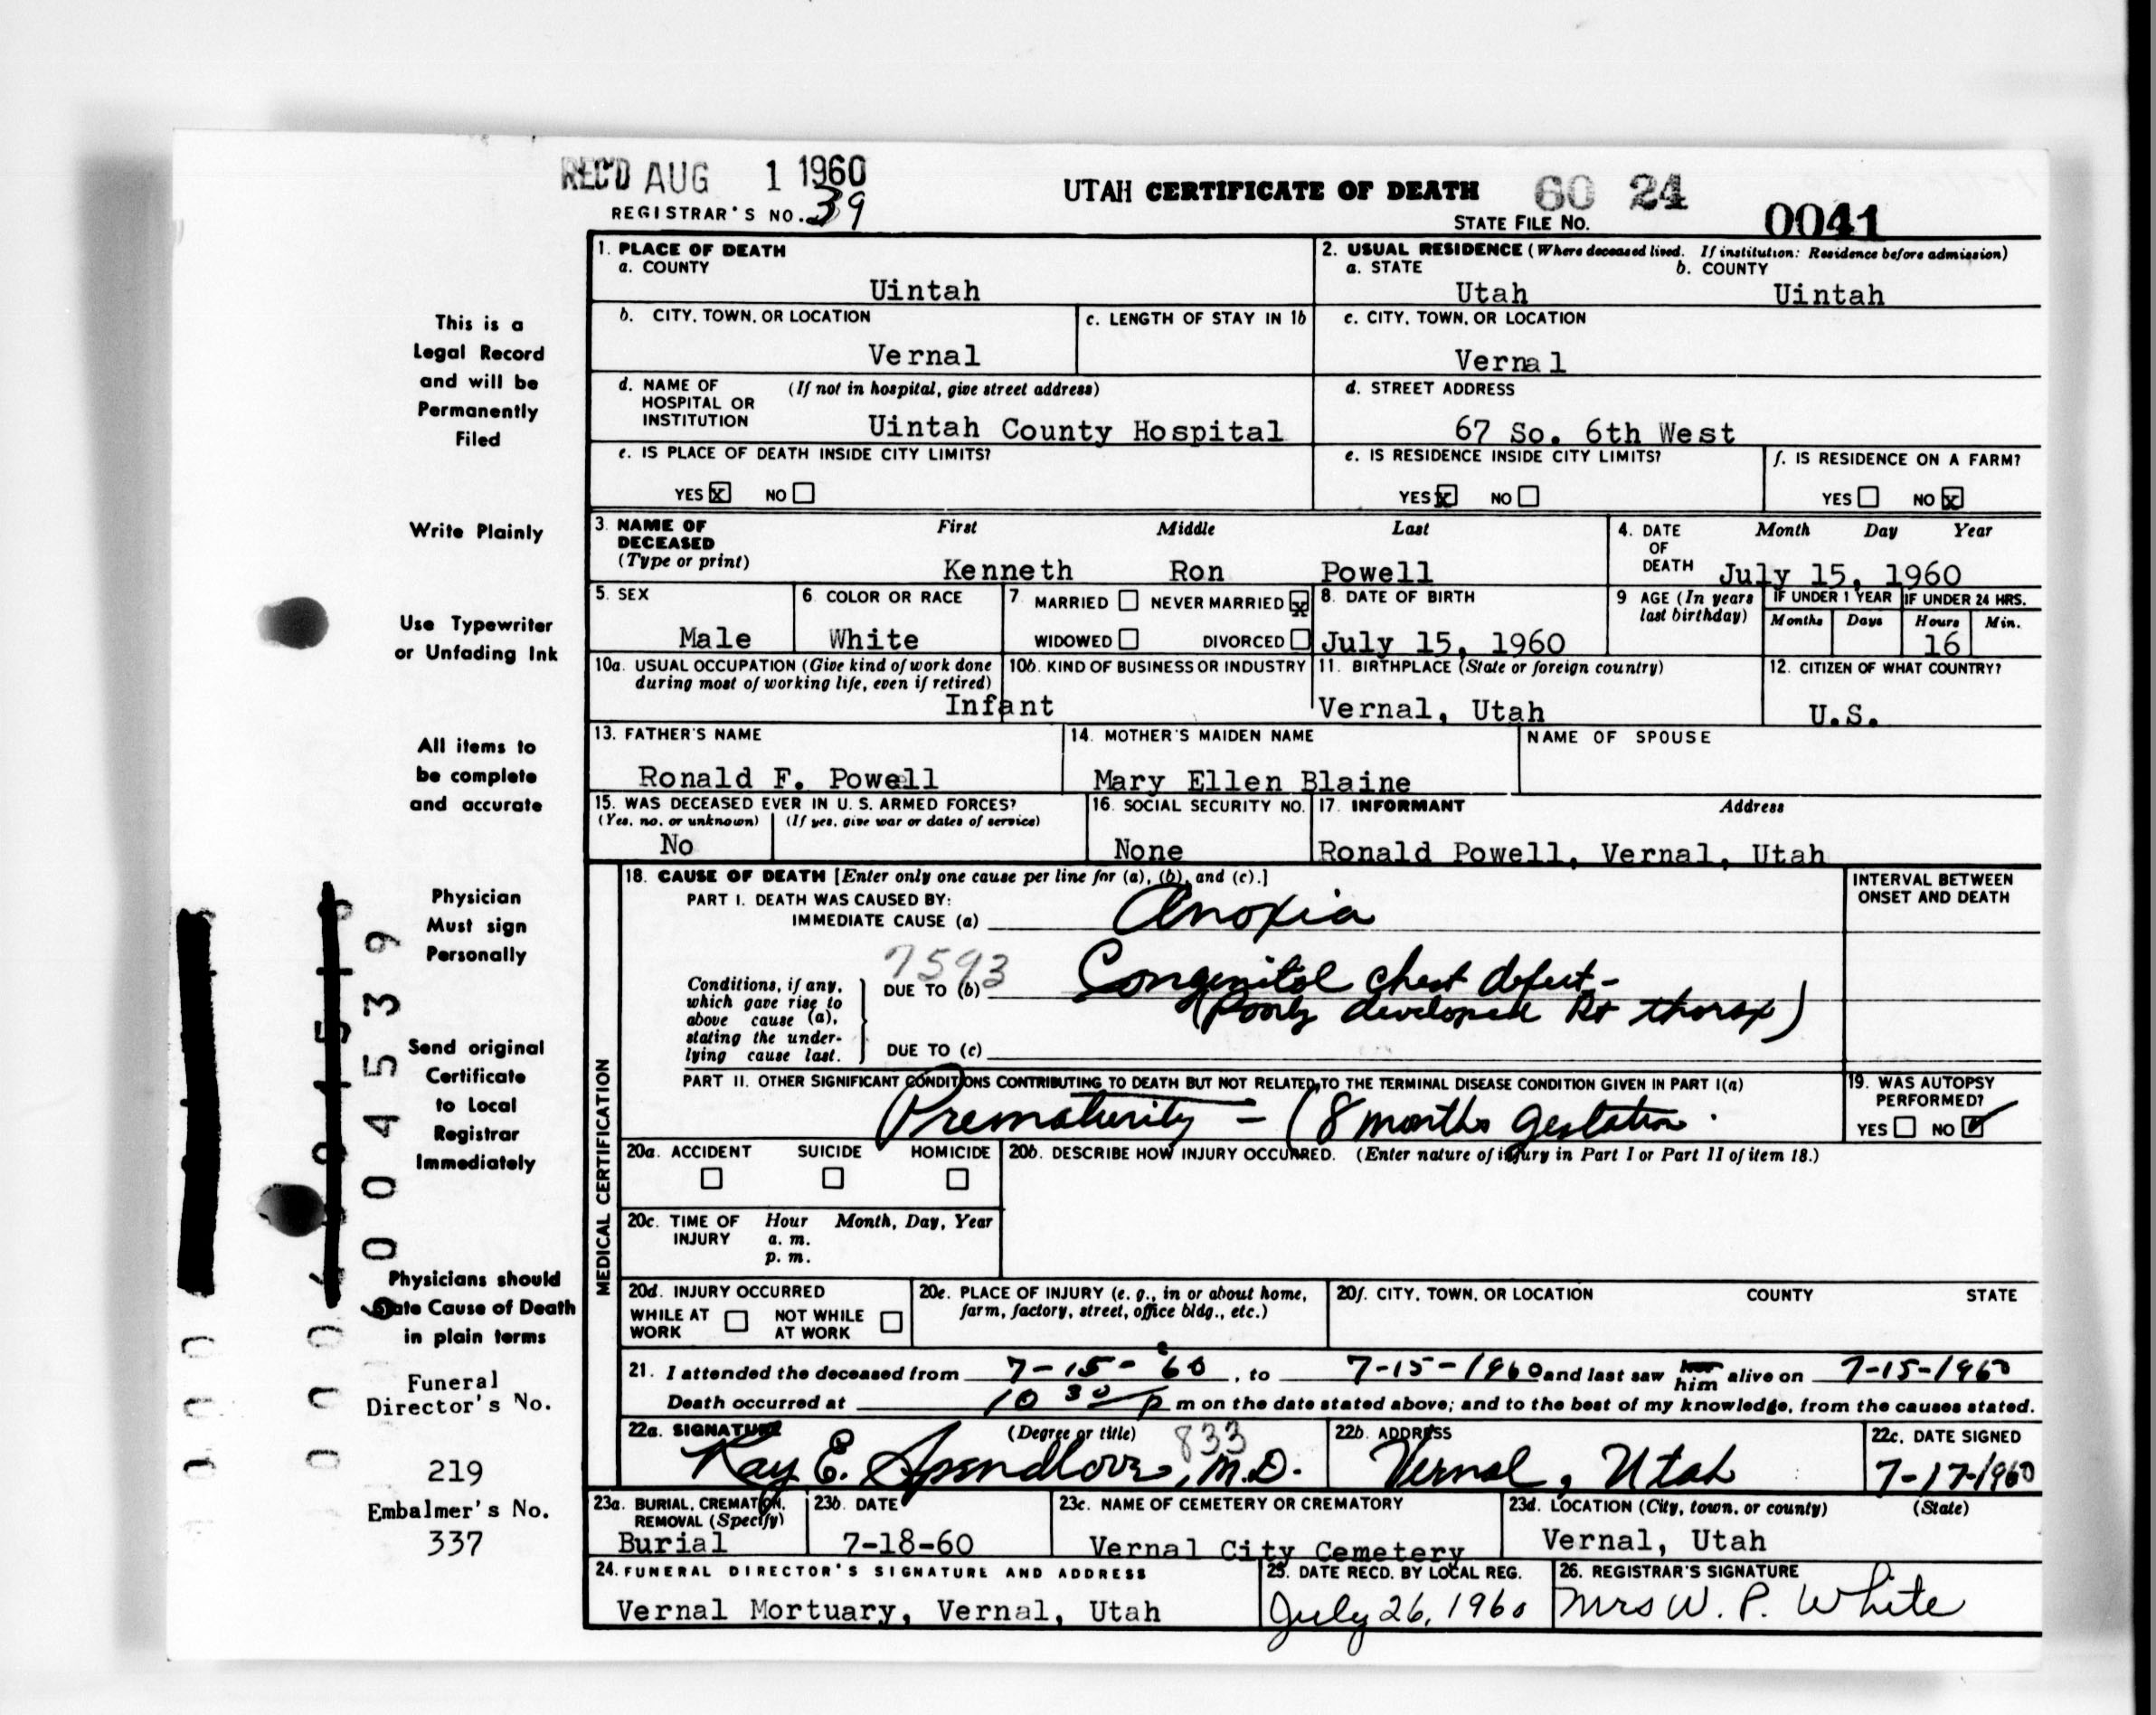 REC'D AUG 1 1960
REGISTRAR'S NO. 39
UTAH CERTIFICATE OF DEATH 60 24
STATE FILE NO. 0041
This is a
Legal Record
and will be
Permanently
Filed
Write Plainly
Use Typewriter
or Unfading Ink
All items to
be complete
and accurate
Physician
Must sign
Personally
Send original
Certificate
to Local
Registrar
Immediately
Physicians should
State Cause of Death
in plain terms
Funeral
Director's No.
219
Embalmer's No.
337
1. PLACE OF DEATH
a. COUNTY
Uintah
2. USUAL RESIDENCE (Where deceased lived. If institution: Residence before admission)
a. STATE b. COUNTY
Utah Uintah
b. CITY, TOWN, OR LOCATION
Vernal
c. LENGTH OF STAY IN 1b
c. CITY, TOWN, OR LOCATION
Vernal
d. NAME OF (If not in hospital, give street address)
HOSPITAL OR
INSTITUTION Uintah County Hospital
d. STREET ADDRESS
67 So. 6th West
e. IS PLACE OF DEATH INSIDE CITY LIMITS?
YES x NO
e. IS RESIDENCE INSIDE CITY LIMITS?
YES x NO
f. IS RESIDENCE ON A FARM?
YES NO x
3. NAME OF First Middle Last
DECEASED
(Type or print) Kenneth Ron Powell
4. DATE Month Day Year
OF
DEATH July 15, 1960
5. SEX
Male
6. COLOR OR RACE
White
7. MARRIED NEVER MARRIED x
WIDOWED DIVORCED
8. DATE OF BIRTH
July 15, 1960
9 AGE (In years
last birthday)
IF UNDER 1 YEAR IF UNDER 24 HRS.
Months Days Hours Min.
16
10a. USUAL OCCUPATION (Give kind of work done
during most of working life, even if retired)
Infant
10b. KIND OF BUSINESS OR INDUSTRY
11. BIRTHPLACE (State or foreign country)
Vernal, Utah
12. CITIZEN OF WHAT COUNTRY?
U.S.
13. FATHER'S NAME
Ronald F. Powell
14. MOTHER'S MAIDEN NAME
Mary Ellen Blaine
NAME OF SPOUSE
15. WAS DECEASED EVER IN U. S. ARMED FORCES?
(Yes, no, or unknown) (If yes, give war or dates of service)
No
16. SOCIAL SECURITY NO.
None
17. INFORMANT Address
Ronald Powell, Vernal, Utah
MEDICAL CERTIFICATION
18. CAUSE OF DEATH [Enter only one cause per line for (a), (b), and (c).]
PART I. DEATH WAS CAUSED BY:
IMMEDIATE CAUSE (a) Anoxia
INTERVAL BETWEEN
ONSET AND DEATH
7593
Conditions, if any,
which gave rise to
above cause (a),
stating the under-
lying cause last.
DUE TO (b) Congenital chest defect -
(Poorly developed Rt thorax)
DUE TO (c)
PART II. OTHER SIGNIFICANT CONDITIONS CONTRIBUTING TO DEATH BUT NOT RELATED TO THE TERMINAL DISEASE CONDITION GIVEN IN PART I(a)
Prematurity - (8 months gestation.
19. WAS AUTOPSY
PERFORMED?
YES NO ✓
20a. ACCIDENT SUICIDE HOMICIDE
20b. DESCRIBE HOW INJURY OCCURRED. (Enter nature of injury in Part I or Part II of item 18.)
20c. TIME OF Hour Month, Day, Year
INJURY a. m.
p. m.
20d. INJURY OCCURRED
WHILE AT NOT WHILE
WORK AT WORK
20e. PLACE OF INJURY (e. g., in or about home,
farm, factory, street, office bldg., etc.)
20f. CITY, TOWN, OR LOCATION COUNTY STATE
21. I attended the deceased from 7-15-'60, to 7-15-1960 and last saw him alive on 7-15-1960
Death occurred at 10 30 p m on the date stated above; and to the best of my knowledge, from the causes stated.
22a. SIGNATURE (Degree or title) 833
Ray E. Spendlove, M.D.
22b. ADDRESS
Vernal, Utah
22c. DATE SIGNED
7-17-1960
23a. BURIAL, CREMATION,
REMOVAL (Specify)
Burial
23b. DATE
7-18-60
23c. NAME OF CEMETERY OR CREMATORY
Vernal City Cemetery
23d. LOCATION (City, town, or county) (State)
Vernal, Utah
24. FUNERAL DIRECTOR'S SIGNATURE AND ADDRESS
Vernal Mortuary, Vernal, Utah
25. DATE RECD. BY LOCAL REG.
July 26, 1960
26. REGISTRAR'S SIGNATURE
Mrs W. P. White